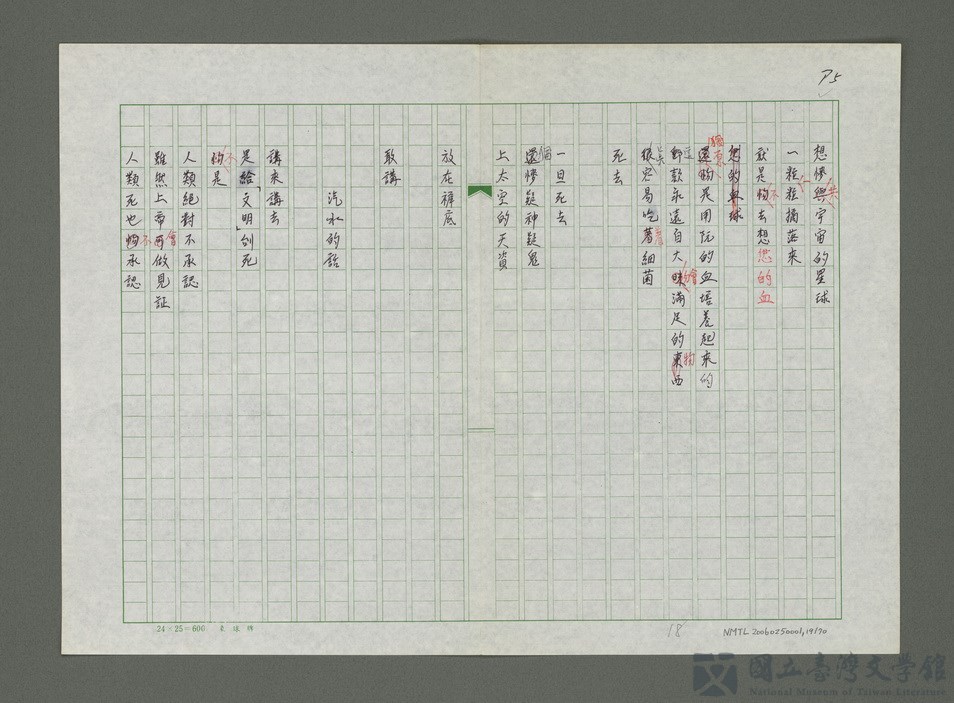 P5
想慘與宇宙的星球
一粒粒摘落來
就是不去想您的血
您的血球
還是用阮的血培養起來的
永遠自大 滿足的東西
很容易吃著細菌
死去
一旦死去
還慘疑神疑鬼
上太空的天資
放在褲底
敢講
汽水的話
講來講去
是給「文明」創死
不是
人類絕對不承認
雖然上帝會做見証
人類死也不承認
24×25=600
18
NMTL 20060250001,19/70
國立臺灣文學館
National Museum of Taiwan Literature